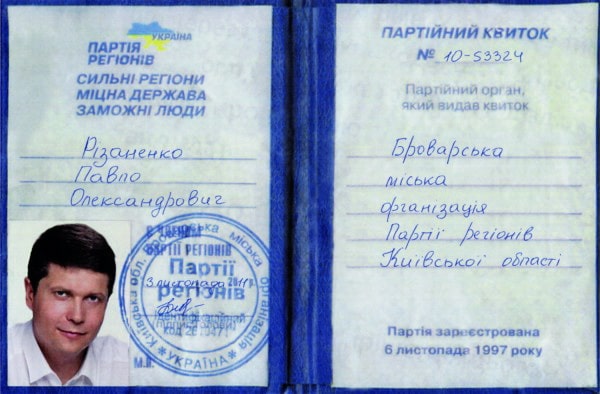 УКРАЇНА
ПАРТІЯ
РЕГІОНІВ
СИЛЬНІ РЕГІОНИ
МІЦНА ДЕРЖАВА
ЗАМОЖНІ ЛЮДИ
Різаненко
Павло
Олександрович
ПАРТІЇ РЕГІОНІВ
Партії
регіонів
3 листопада
Ідентифікаційний
Київська обл. Броварська міська організація
УКРАЇНА
М.П.
ПАРТІЙНИЙ КВИТОК
№ 10-53324
Партійний орган,
який видав квиток
Броварська
міська
організація
Партії регіонів
Київської області
Партія зареєстрована
6 листопада 1997 року